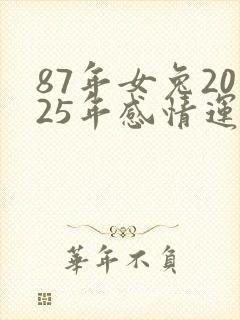 87年女兔20
25年感情運
華年不負